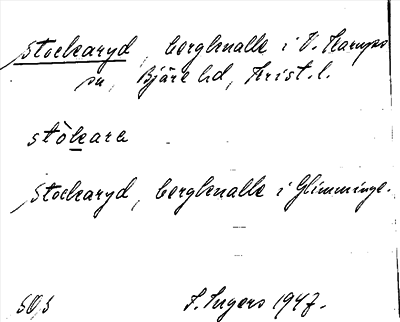 Stockaryd, bergknalle i V. Karups
sn, Bjäre hd, Krist. l.
stòkara
Stockaryd, bergknalle i Glimminge.
I. Ingers 1947.